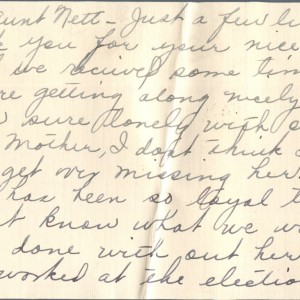 Aunt Nett - Just a few li
k you for your nice
we recived some tim
re getting along nicely
sure lonely with
Mother, I dont think
get ovr missing her
has been so loyal t
t know what we w
done with out her
worked at the electio